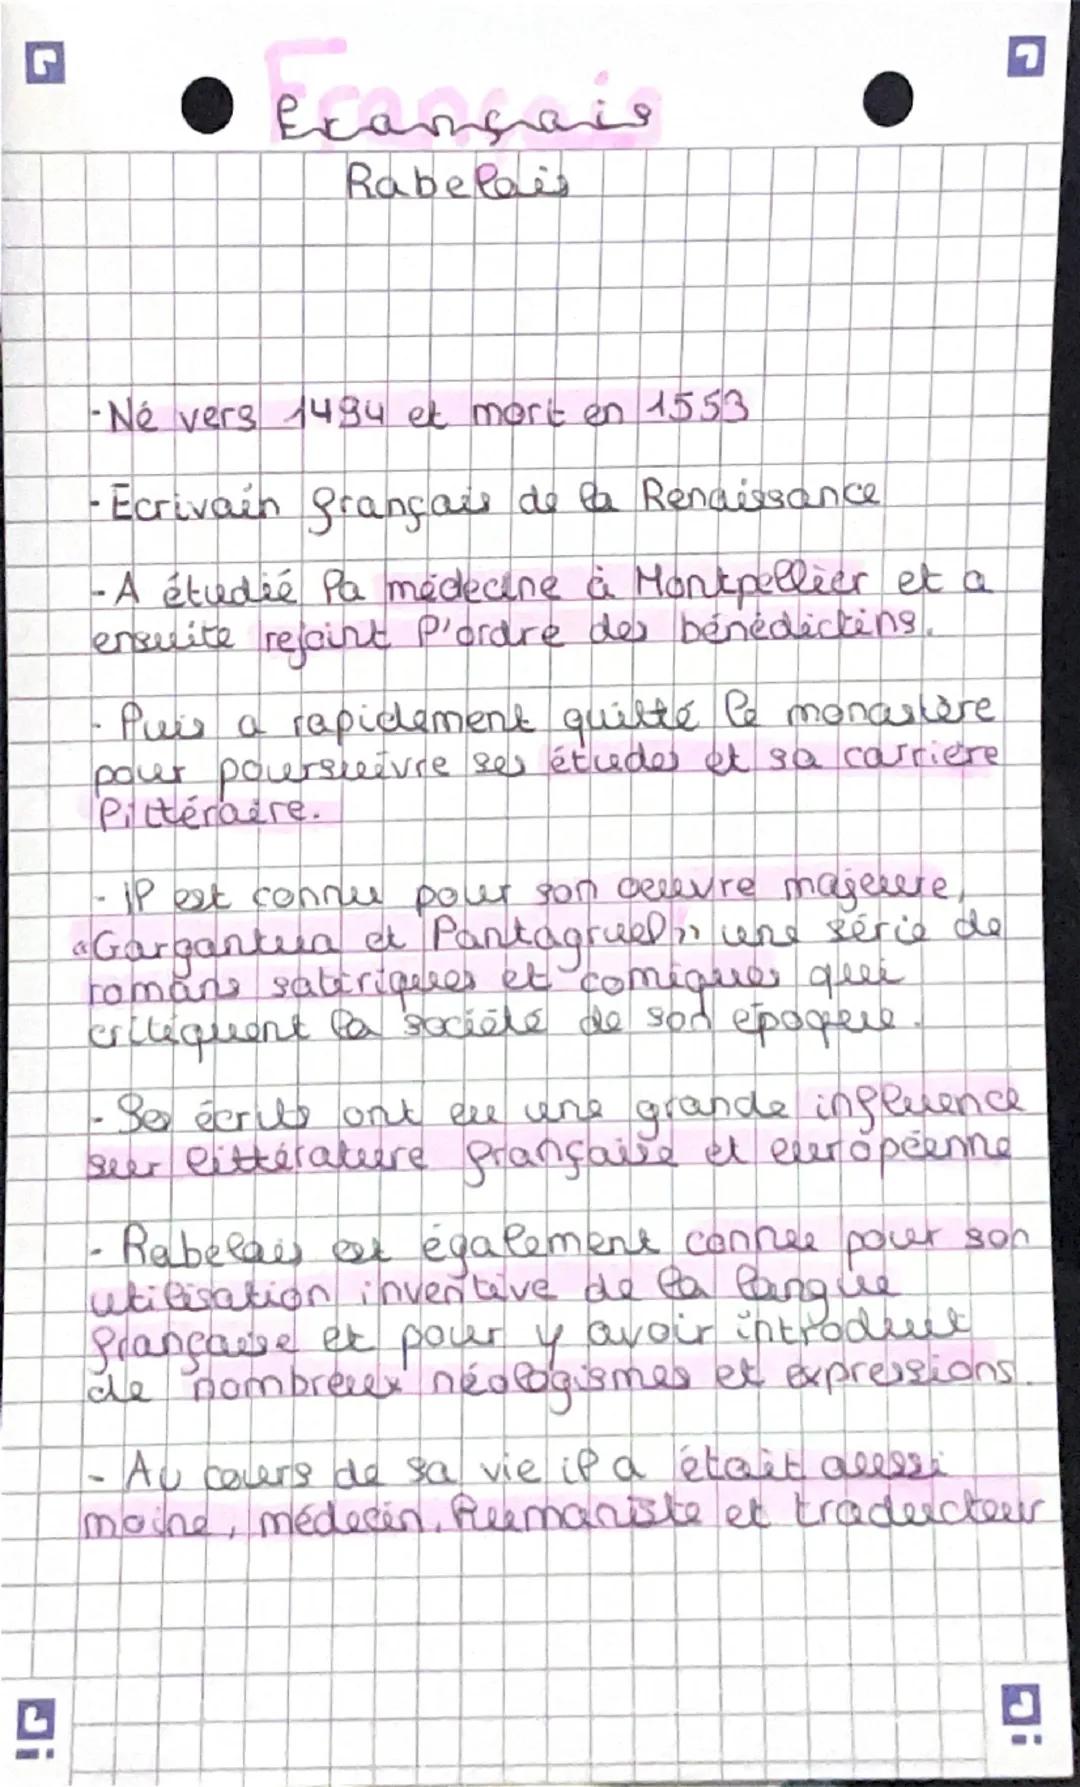 Français
Rabelais
- Né vers 1494 et mort en 1553
- Ecrivain français de la Renaissance
- A étudié la médecine à Montpellier et a
ensuite rejoint l'ordre des bénédictins.
- Puis a rapidement quitté le monastère
pour poursuivre ses études et sa carrière
littéraire.
- il est connu pour son oeuvre majeure,
«Gargantua et Pantagruel» une série de
romans satiriques et comiques qui
critiquent la société de son époque.
- Ses écrits ont eu une grande influence
sur littérature française et européenne
- Rabelais est également connu pour son
utilisation inventive de la langue
française et pour y avoir introduit
de nombreux néologismes et expressions.
- Au cours de sa vie il a était aussi
moine, médecin, humaniste et traducteur